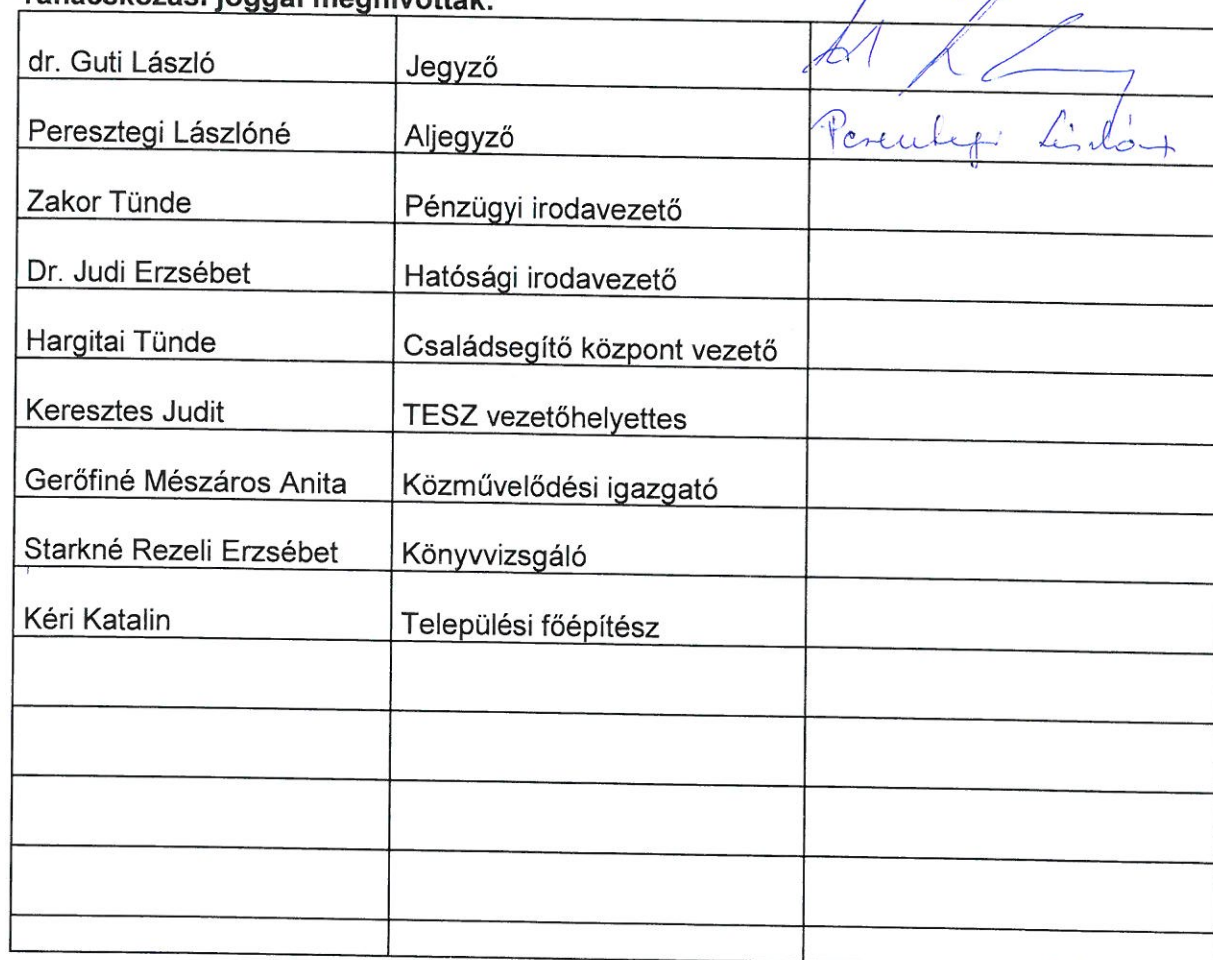 Tanácskozási joggal meghívottak:
dr. Guti László Jegyző
Peresztegi Lászlóné Aljegyző Peresztegi Lászlóné
Zakor Tünde Pénzügyi irodavezető
Dr. Judi Erzsébet Hatósági irodavezető
Hargitai Tünde Családsegítő központ vezető
Keresztes Judit TESZ vezetőhelyettes
Gerőfiné Mészáros Anita Közművelődési igazgató
Starkné Rezeli Erzsébet Könyvvizsgáló
Kéri Katalin Települési főépítész